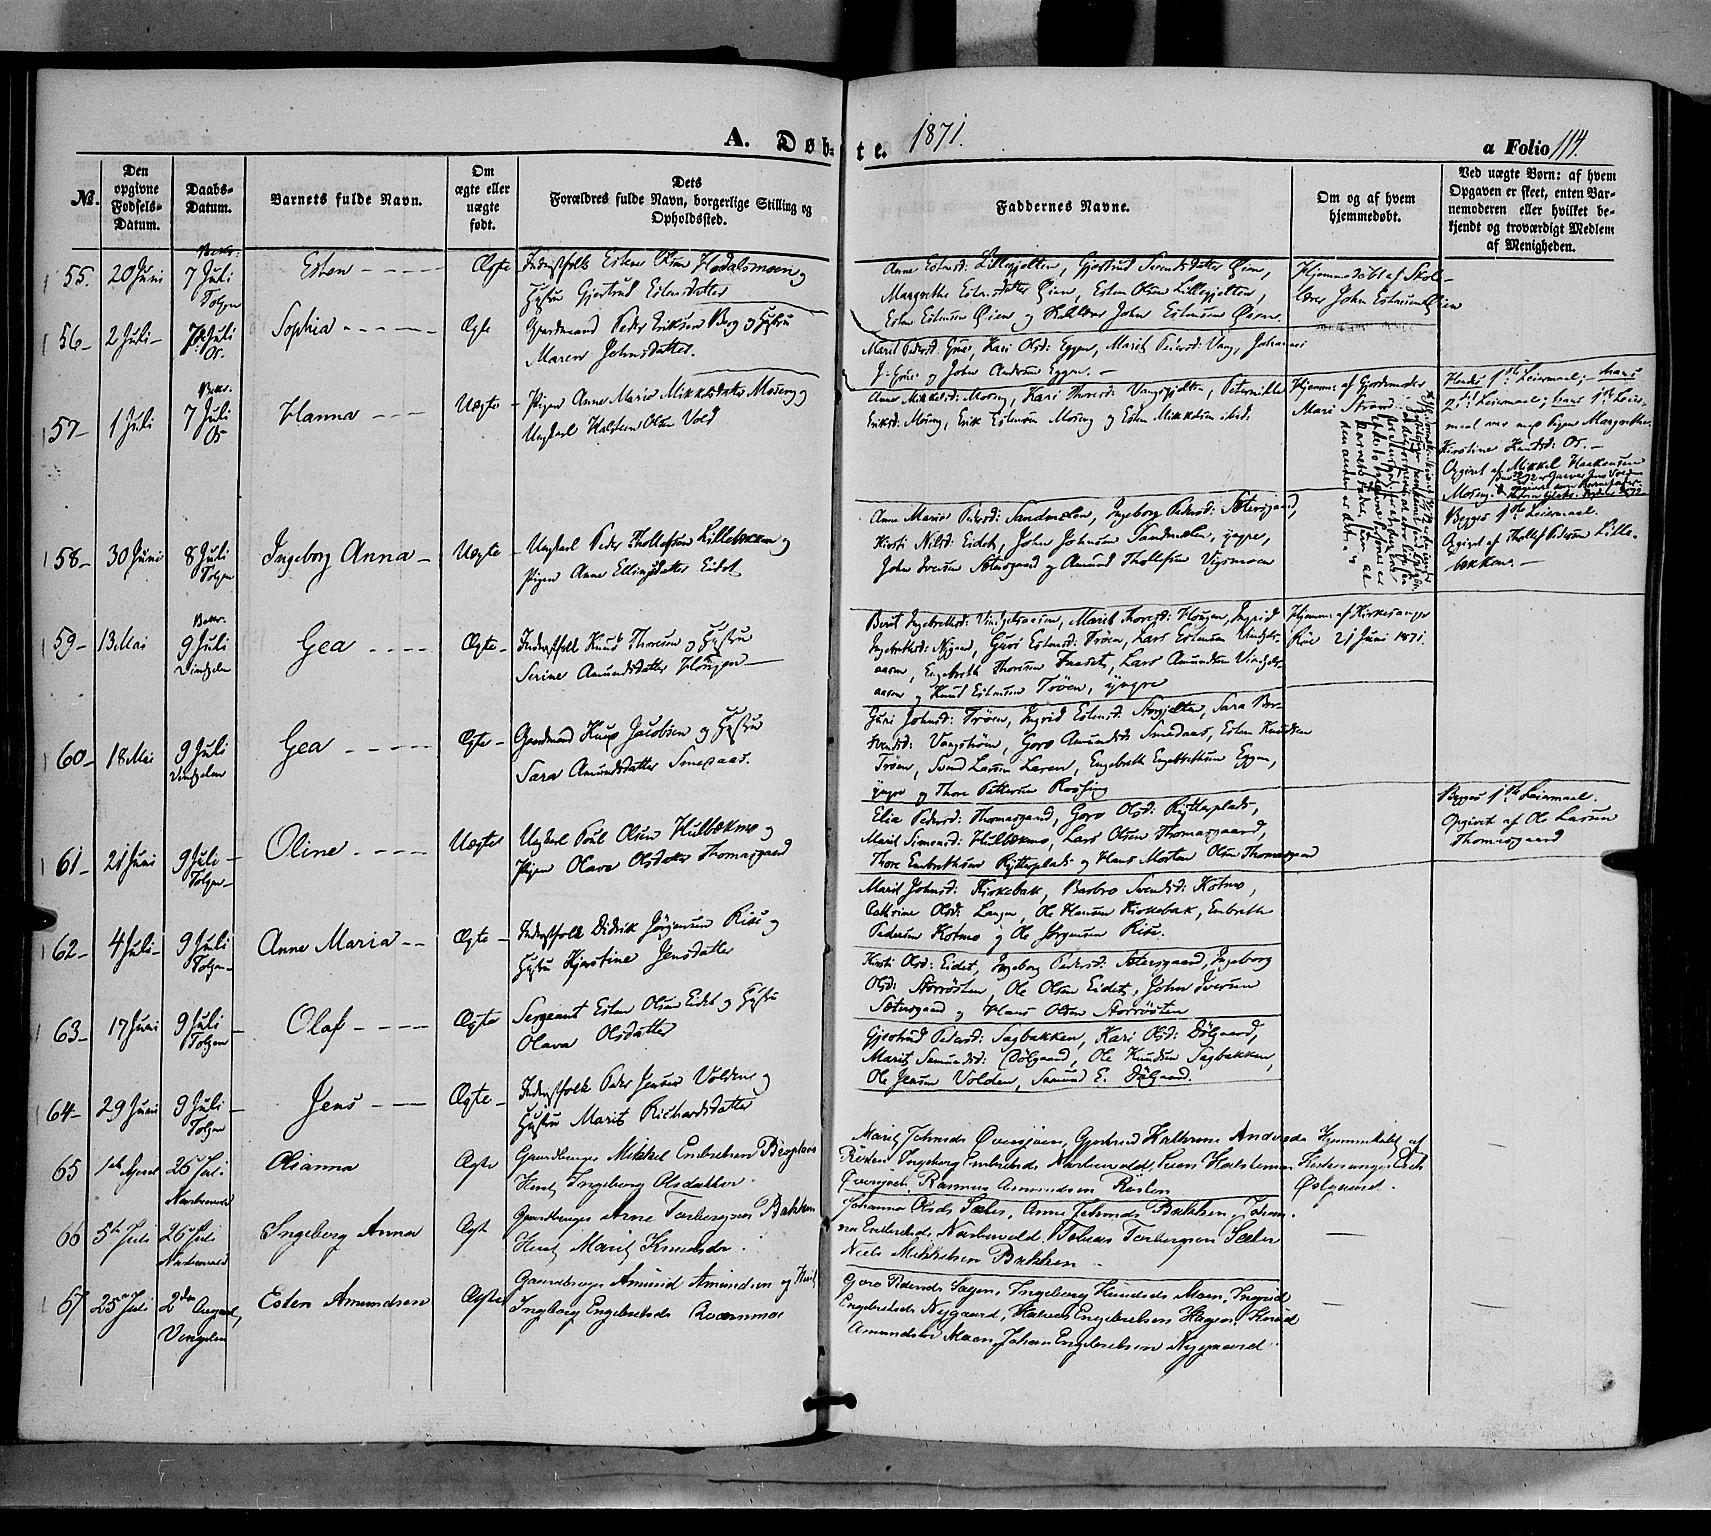 A. Døb-
te. 1871.
a Folio 114.
No.
Den opgivne Fødsels-Datum.
Daabs-Datum.
Barnets fulde Navn.
Om ægte eller uægte født.
Dets Forældres fulde Navn, borgerlige Stilling og Opholdssted.
Faddernes Navne.
Om og af hvem hjemmedøbt.
Ved uægte Børn: af hvem Opgaven er skeet, enten Barnemoderen eller hvilket bekjendt og troværdigt Medlem af Menigheden.
55. 20 Juni Bekr. 7 Juli Tolgen Esten Ægte Inderstfolk Esten Olsen Hodalsmoen og
Hustru Gjertrud Estensdatter
Anne Estensd: Lillegjelten, Gjertrud Svendsdatter Øien,
Margrethe Estensdatter Øien, Esten Olsen Lillegjelten,
Esten Estensen Øien og John Estensen Øien.
Hjemmedøbt af Skole-
lærer John Estensen Øien
56 2 Juli Juli Os. Sophia Ægte Gaardmand Peder Eriksen Berg og Hustru
Maren Johnsdatter.
Marit Pedersd: Kari Olsd: Eggen, Marit Pedersd: Vang, Johannes
og John Andersen Eggen.
57 1 Juli Bekr. 7 Juli Os Hanna Uægte Pigen Anne Marie Mikkelsdatter Moseng og
Ungkarl Halsten Olsen Vold
Anne Mikkelsd: Moseng, Kari Thoresd: Vangsgjelten, Pernille
Eriksd: Moseng, Erik Estensen Moseng og Esten Mikkelsen ibid:
Hjemme af Gjordemoder
Mari Strand.
Hendes 1ste Leiermaal; hans
2det Leiermaal; hans 1ste Leier-
maal var med Pigen Margrethe
Kirstine Knudsd: Os.
Opgivet af Mikkel Haakensen
Moseng.
58 30 Juni 8 Juli Tolgen Ingeborg Anna Uægte Ungkarl Peder Thollefsen Lillebækken og
Pigen Anne Ellingsdatter Eidet
Anne Marie Pedersd: Sandmælen, Ingeborg Pedersd: Sætersgaard,
Kirsti Nilsd: Eidet, John Johnsen Sandmælen, yngre,
John Iversen Sætersgaard og Amund Thollefsen Vigsmoen
Begges 1ste Leiermaal.
Opgivet af Thollef Pedersen Lille-
bækken.
59 13 Mai Bekr. 9 Juli Vingelen Gea Ægte Inderstfolk Knud Thoresen og Hustru
Serine Amundsdatter Hougen
Berit Ingebretsd: Vingelsaasen, Marit Thoresd: Hougen, Ingrid
Ingebretsd: Nygaard, Guri Estensd: Trøen, Lars Estensen Vingels-
aasen, Engebreth Thoresen Lars Amundsen Vingels-
aasen og Knud Estensen Trøen, yngre
Hjemme af Kirkesanger
Røe 21 Juni 1871.
60 18 Mai 9 Juli Vingelen Gea Ægte Gaardmand Knud Jacobsen og Hustru
Sara Amundsdatter
Guri Johnsd: Trøen, Ingrid Estensd: Storgjelten, Sara
Vangstrøen, Goro Amundsd: Esten Knudsen
Trøen, Svend Larsen Engebreth Engebrethsen Eggen,
yngre og Thore Pettersen
61 21 Juni 9 Juli Tolgen Oline Uægte Ungkarl Poul Olsen Hulbækmo og
Pigen Olava Olsdatter Thomasgaard
Elia Pedersd: Thomasgaard, Goro Olsd: Rytterplads,
Marit Simensd: Hulbækmo, Lars Olsen Thomasgaard,
Thore Embrethsen Rytterplads og Hans Morten Olsen Thomasgaard
Begges 1ste Leiermaal.
Opgivet af Ole Larsen
Thomasgaard
62 4 Juli 9 Juli Tolgen Anne Maria Ægte Inderstfolk Didrik Jørgensen Riise og
Hustru Kjerstine Jensdatter
Marit Johnsd: Kirkebak, Barbro Svendsd: Kotmo,
Cathrine Olsd: Langen, Ole Hansen Kirkebak, Embreth
Pedersen Kotmo og Ole Jørgensen Riise.
63 17 Juni 9 Juli Tolgen Olaf Ægte Sergeant Esten Olsen Eidet og Hustru
Olava Olsdatter
Kirsti Olsd: Eidet, Ingeborg Pedersd: Sætersgaard, Ingeborg
Olsd: Storrøsten, Ole Olsen Eidet, John Iversen
Sætersgaard og Hans Olsen Storrøsten
64 29 Juni 9 Juli Tolgen Jens Ægte Inderstfolk Peder Jensen Volden og
Hustru Marit Richardsdatter
Gjertrud Pedersd: Sagbakken, Kari Olsd: Dølgaard,
Marit Samundsd: Dølgaard, Ole Knudsen Sagbakken,
Ole Jensen Volden, Samund E. Dølgaard.
65 26 Juli Narbuvold Olianna Ægte Gaardbruger Mikkel Embretsen
Hust Ingeborg Olsdatter
Marit Johnsds Øversjøen, Gjertrud Kathrine Andersds
Røsten, Ingeborg Embretsds Narbuvold, Halstensen
Øversjøen, Rasmus Amundsen Røsten
Hjemmedøbt af
Kirkesanger Erik
Østgaard.
66 5te Juli 26 Juli Narbuvold Ingeborg Anna Ægte Gaardbruger Arne Torbergsen Bakken
Hust Marit Knudsdr.
Johanna Olsds Sæter, Anne Johnsds Bakken, Johan-
na Embretsds Narbuvold, Tobias Torbergsen Sæter
Niels Mikkelsen Bakken
67 25 Juli 2den August, Vingelen Esten Amundsen Ægte Gaardbruger Amund Amundsen og Hust
Ingeborg Engebretsds
Goro Pedersds Ingeborg Knudsds Moen, Ingrid
Engebretsds Nygaard, Engebretsen Hagen, Knud
Amundsen Moen, Johan Engebretsen Nygaard